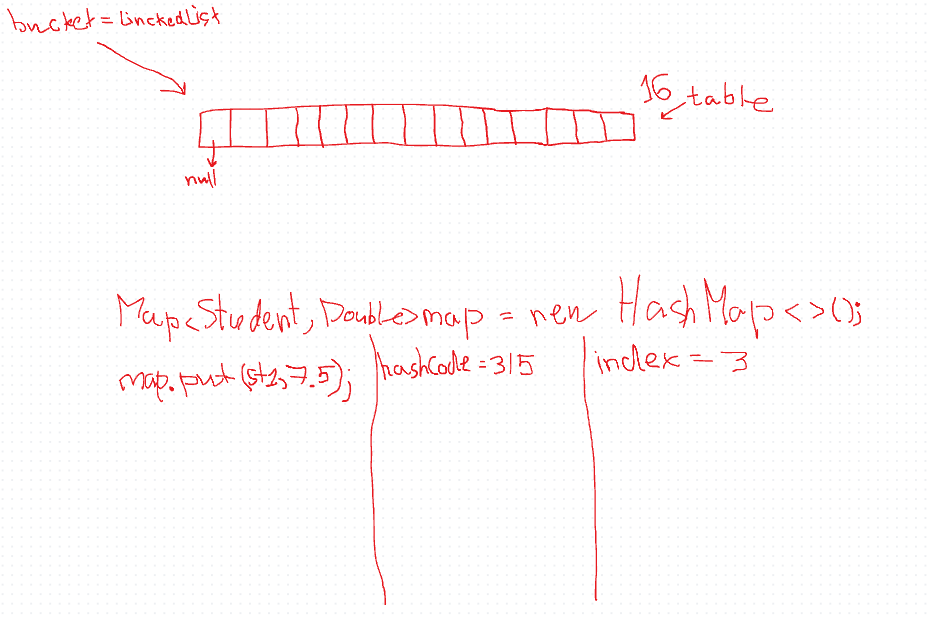 bucket = LinckedList
16
table
null
Map<Student, Double> map = new HashMap<>();
map.put(st1, 7.5);
hashCode = 315
index = 3